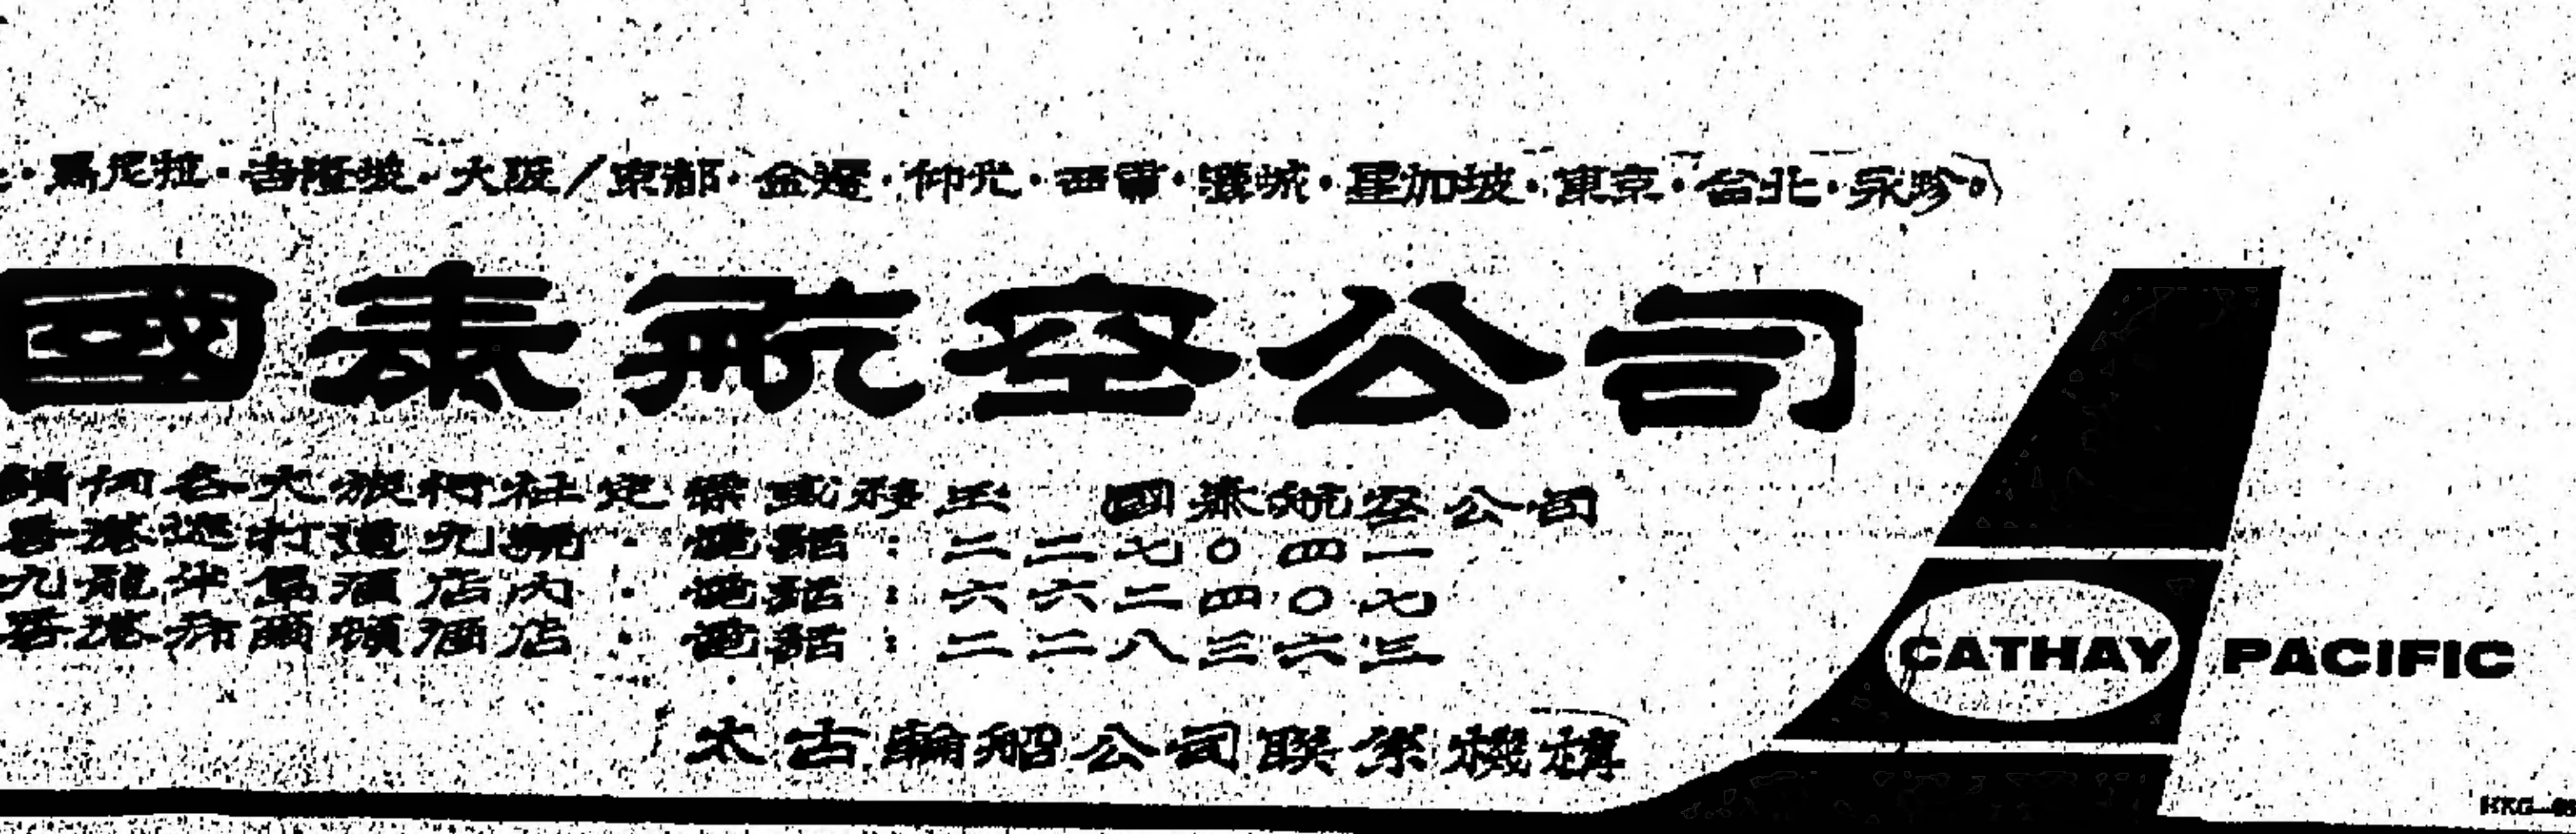 馬尼拉·吉隆坡·大阪/京都·金邊·仰光·西貢·漢城·星加坡·東京·台北·永珍·
國泰航空公司
請向各大旅行社定票或移玉 國泰航空公司
香港遮打道九號·電話:二二七〇四一
九龍半島酒店內·電話:六六二四〇七
香港希爾頓酒店·電話:二二八三六三
太古輪船公司聯系機構
CATHAY PACIFIC
HKG